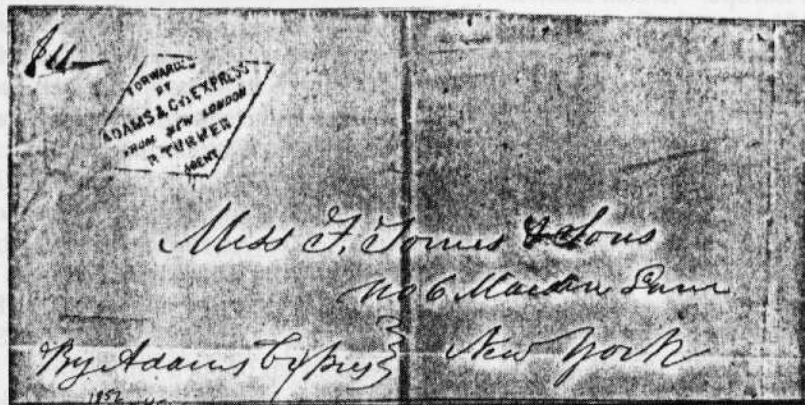 FORWARDED
BY
ADAMS & CO'S EXPRESS
FROM NEW LONDON
R TURNER
AGENT
Mess F. Tomes & Sons
No 6 Maiden Lane
New York
By Adams Express
1852